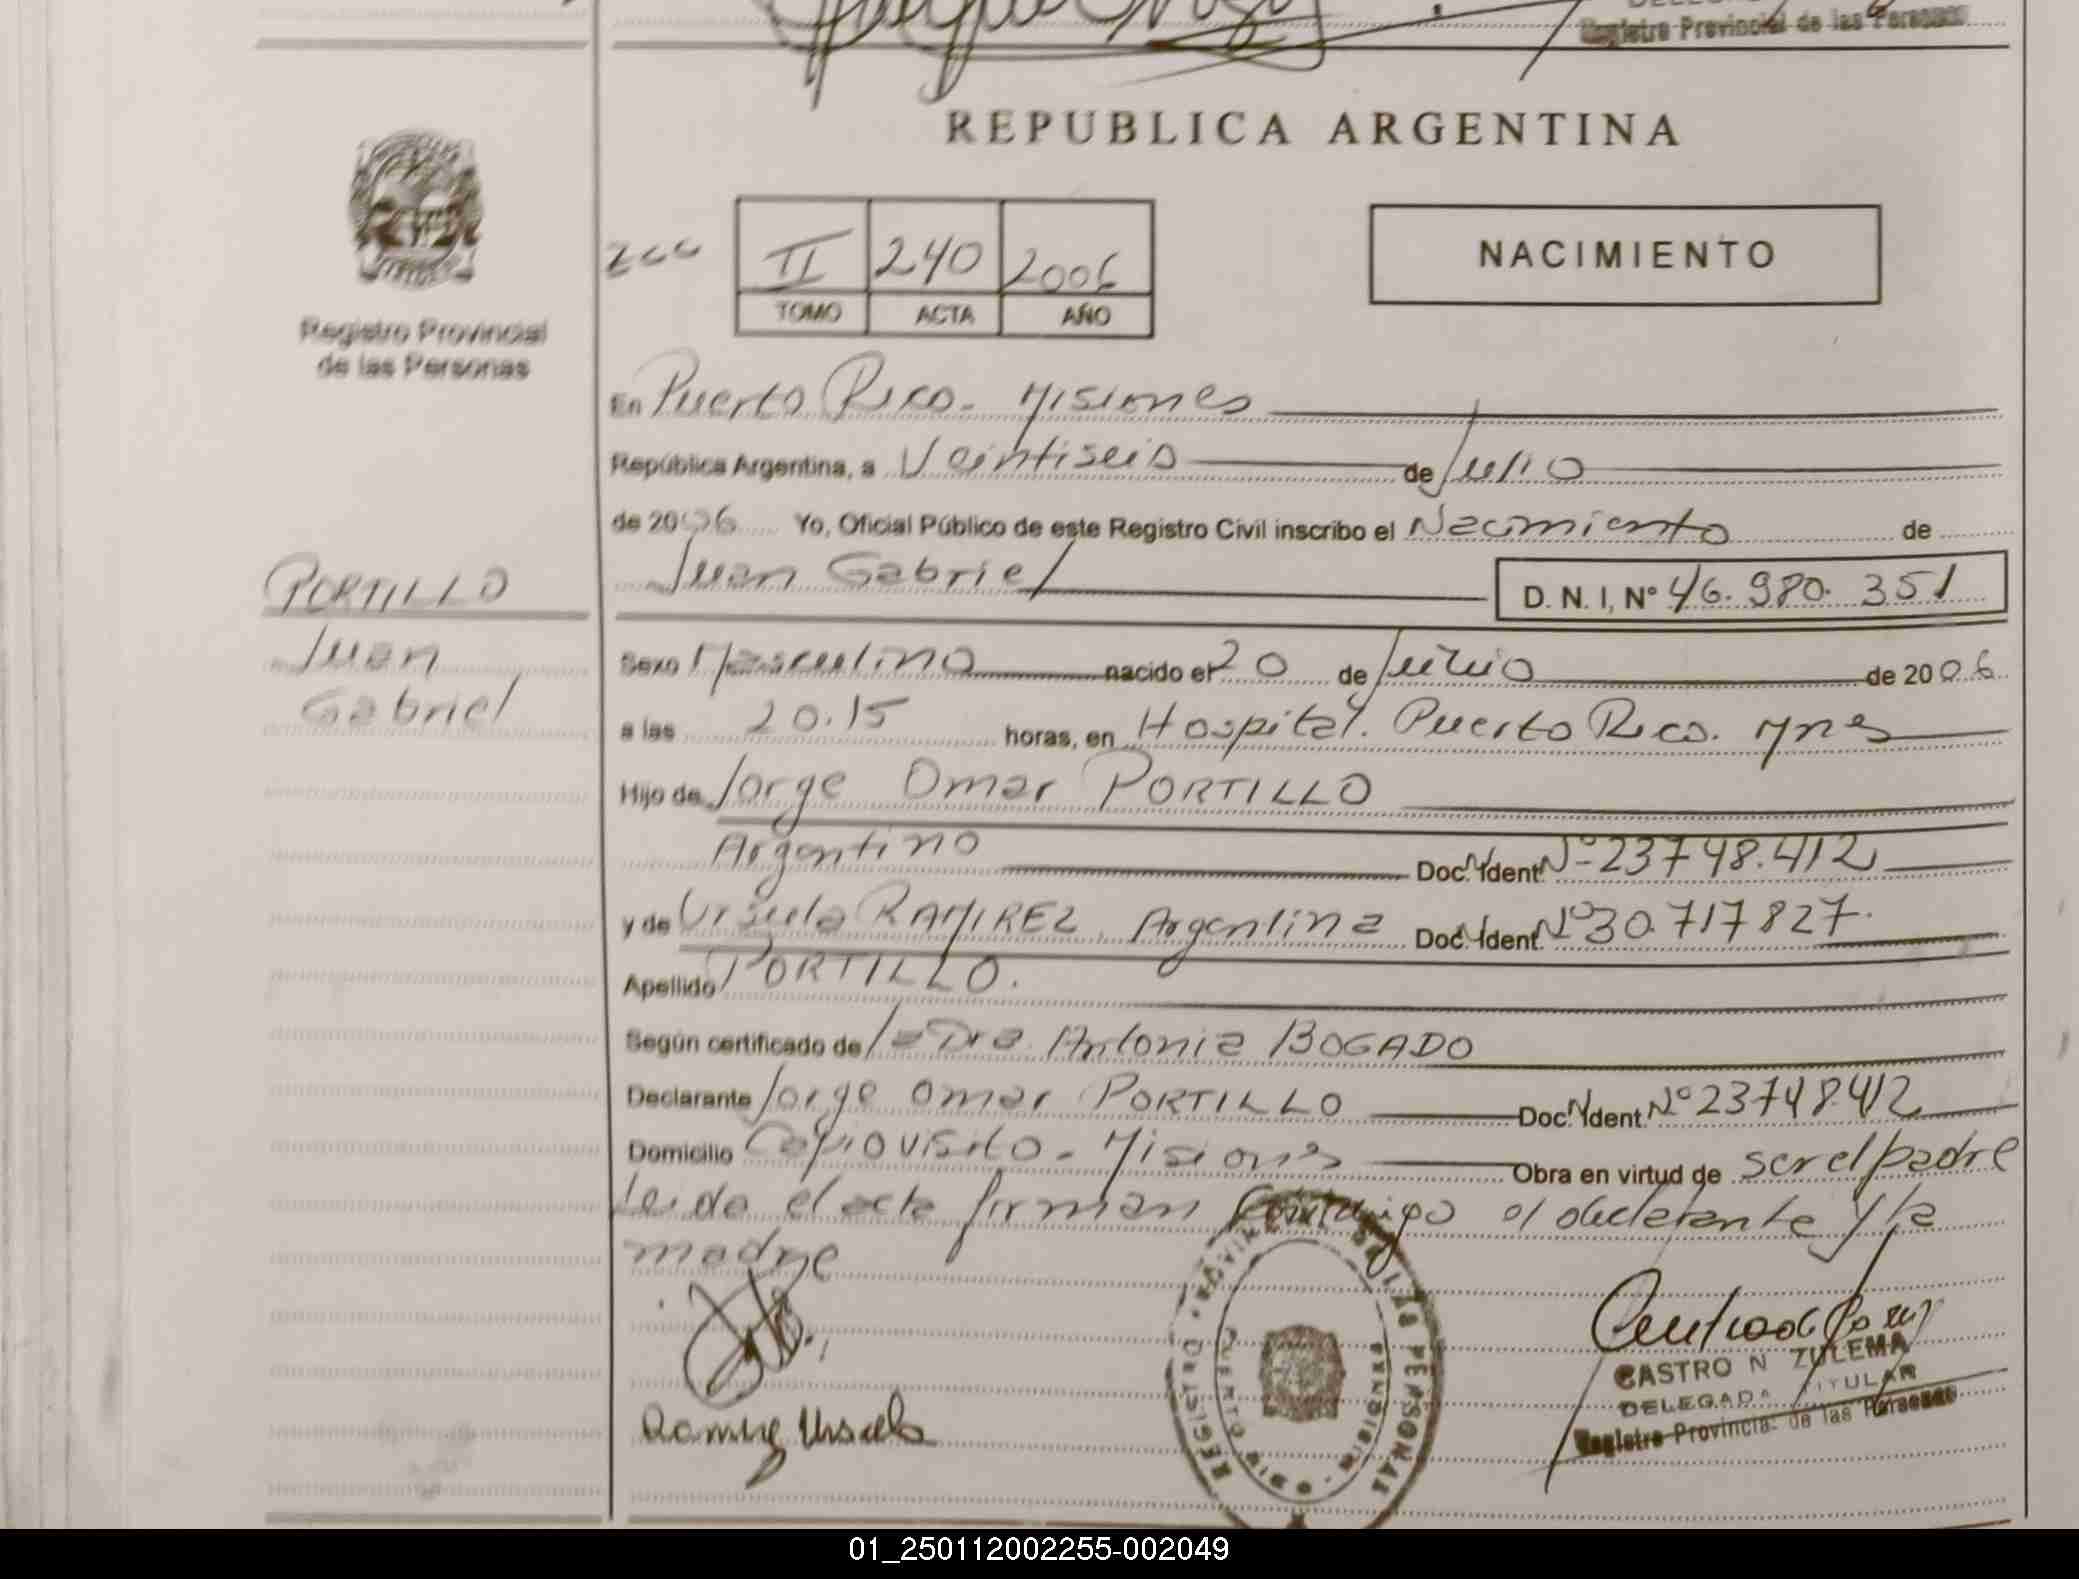 Registro Provincial de las Personas
REPUBLICA ARGENTINA
II 240 2006
TOMO ACTA AÑO
NACIMIENTO
Registro Provincial
de las Personas
En Puerto Rico - Misiones
República Argentina, a Veintiseis de Julio
de 2006 Yo, Oficial Público de este Registro Civil inscribo el Nacimiento de
Juan Gabriel D. N. I, Nº 46.980.351
PORTILLO
Juan
Gabriel
Sexo Masculino nacido el 20 de Julio de 2006
a las 20.15 horas, en Hospital. Puerto Rico. Mnes
Hijo de Jorge Omar PORTILLO
Argentino Doc. Ident Nº 23748.412
y de Ursula RAMIREZ Argentina Doc. Ident. Nº 30.717827.
Apellido PORTILLO.
Según certificado de la Dra. Antonia BOGADO
Declarante Jorge Omar PORTILLO Doc. Ident. Nº 23748.412
Domicilio Capiovisito - Misiones Obra en virtud de ser el padre
Leida el acta firman conmigo el declarante y la
madre
Ramirez Ursula
REGISTRO PROVINCIAL DE LAS PERSONAS
PUERTO RICO - MISIONES
CASTRO N ZULEMA
DELEGADA TITULAR
Registro Provincial de las Personas
01_250112002255-002049